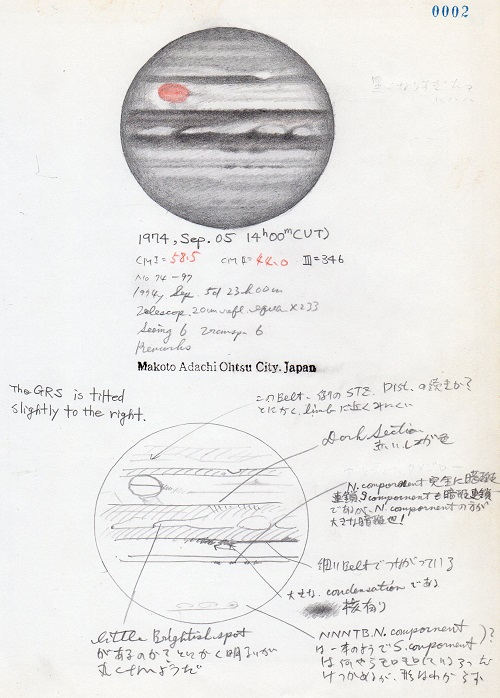 0002
1974, Sep. 05 14h00m(UT)
CM I = 58.5 CM II = 44.0 III = 346
No 74-97
1974, Sep. 5d 23h00m
Telescop. 20cm refl. equa x233
Seeing 6 Transp. 6
Remarks
Makoto Adachi Ohtsu City. Japan
The GRS is tilted
slightly to the right.
このBelt 例のSTZ. Dist. の続きか?
とにかく、limbに近くみにくい
Dark Section
赤い
N. component 完全に暗斑
連鎖 S component も暗斑連鎖
であるが、N. component の方が
大きな暗斑也!
細いBeltでつながっている
大きな condensation である
核有り
little Brightish spot
があるのか? とにかく明るいが
NNNTB. N. component )?
は一本のようで S. component
は何やらモロモロしている